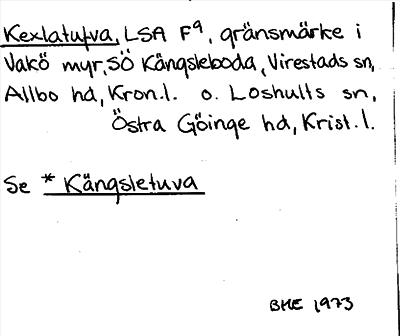 Kexlatufva, LSA Fq, gränsmärke i
Vakö myr, SÖ Kängsleboda, Virestads sn,
Allbo hd, Kron.l. o. Loshults sn,
Östra Göinge hd, Krist.l.
Se * Kängsletuva
BHE 1973